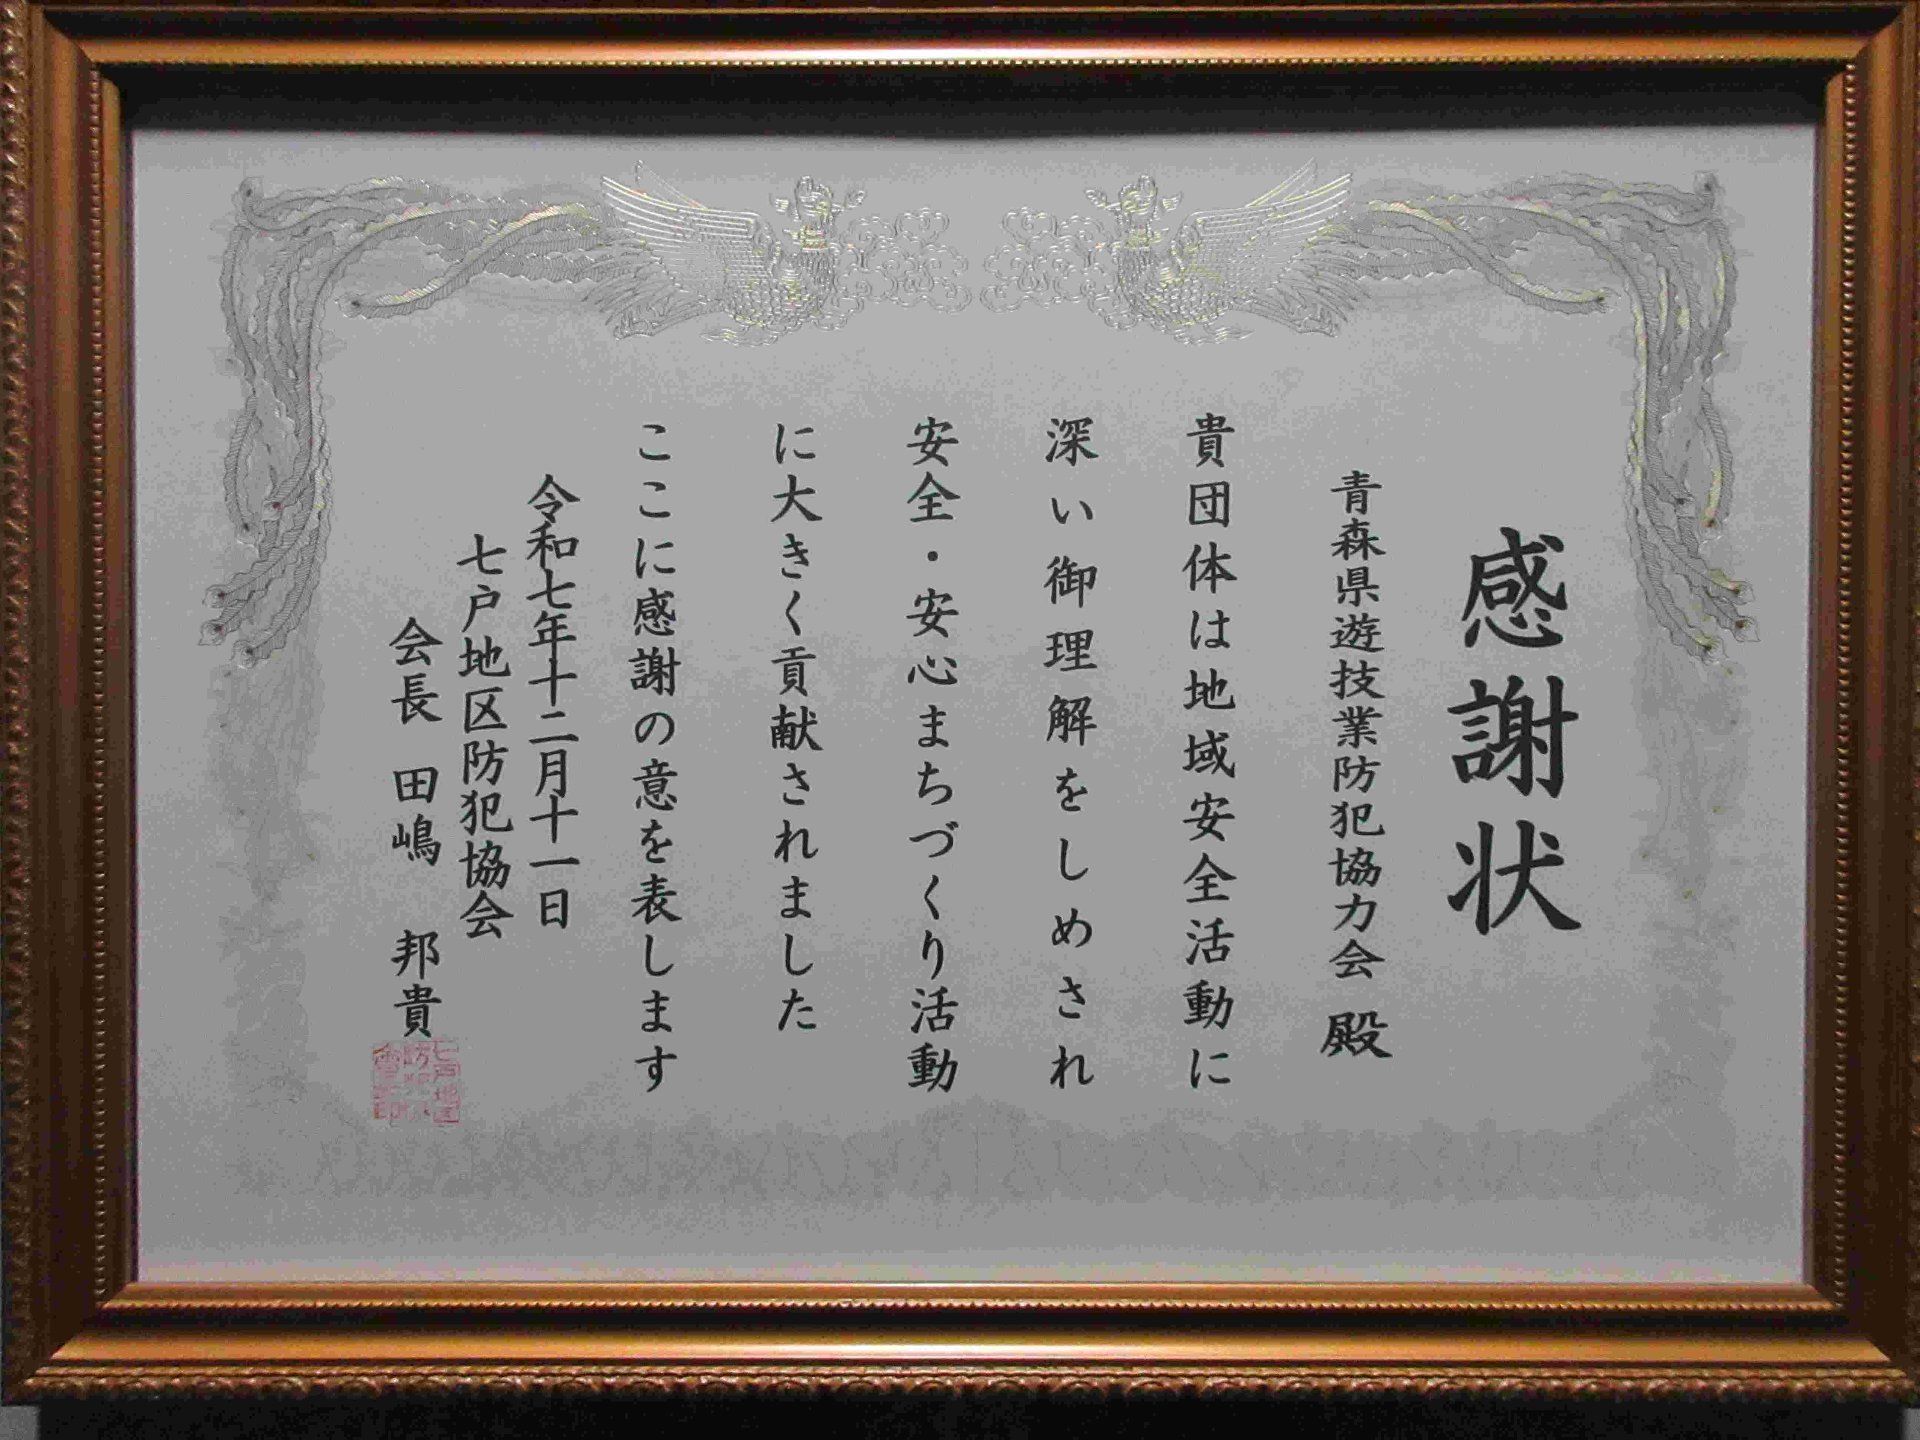 感謝状
青森県遊技業防犯協力会 殿
貴団体は地域安全活動に
深い御理解をしめされ
安全・安心まちづくり活動
に大きく貢献されました
ここに感謝の意を表します
令和七年十二月十一日
七戸地区防犯協会
会長 田嶋 邦貴